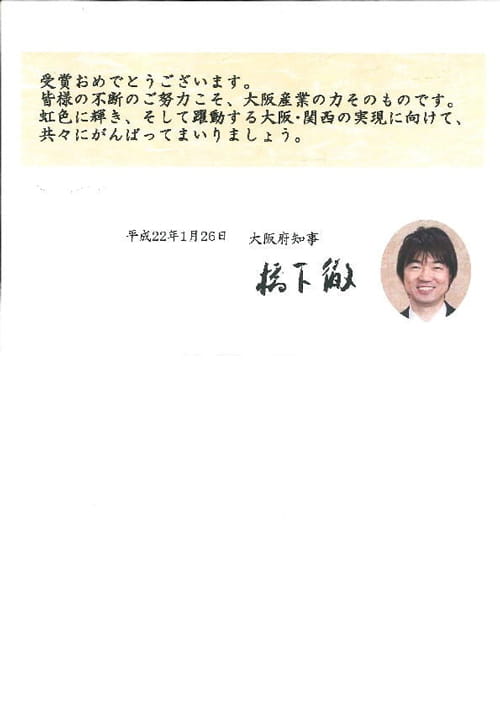 受賞おめでとうございます。
皆様の不断のご努力こそ、大阪産業の力そのものです。
虹色に輝き、そして躍動する大阪･関西の実現に向けて、
共々にがんばってまいりましょう。
平成22年1月26日 大阪府知事
橋下徹